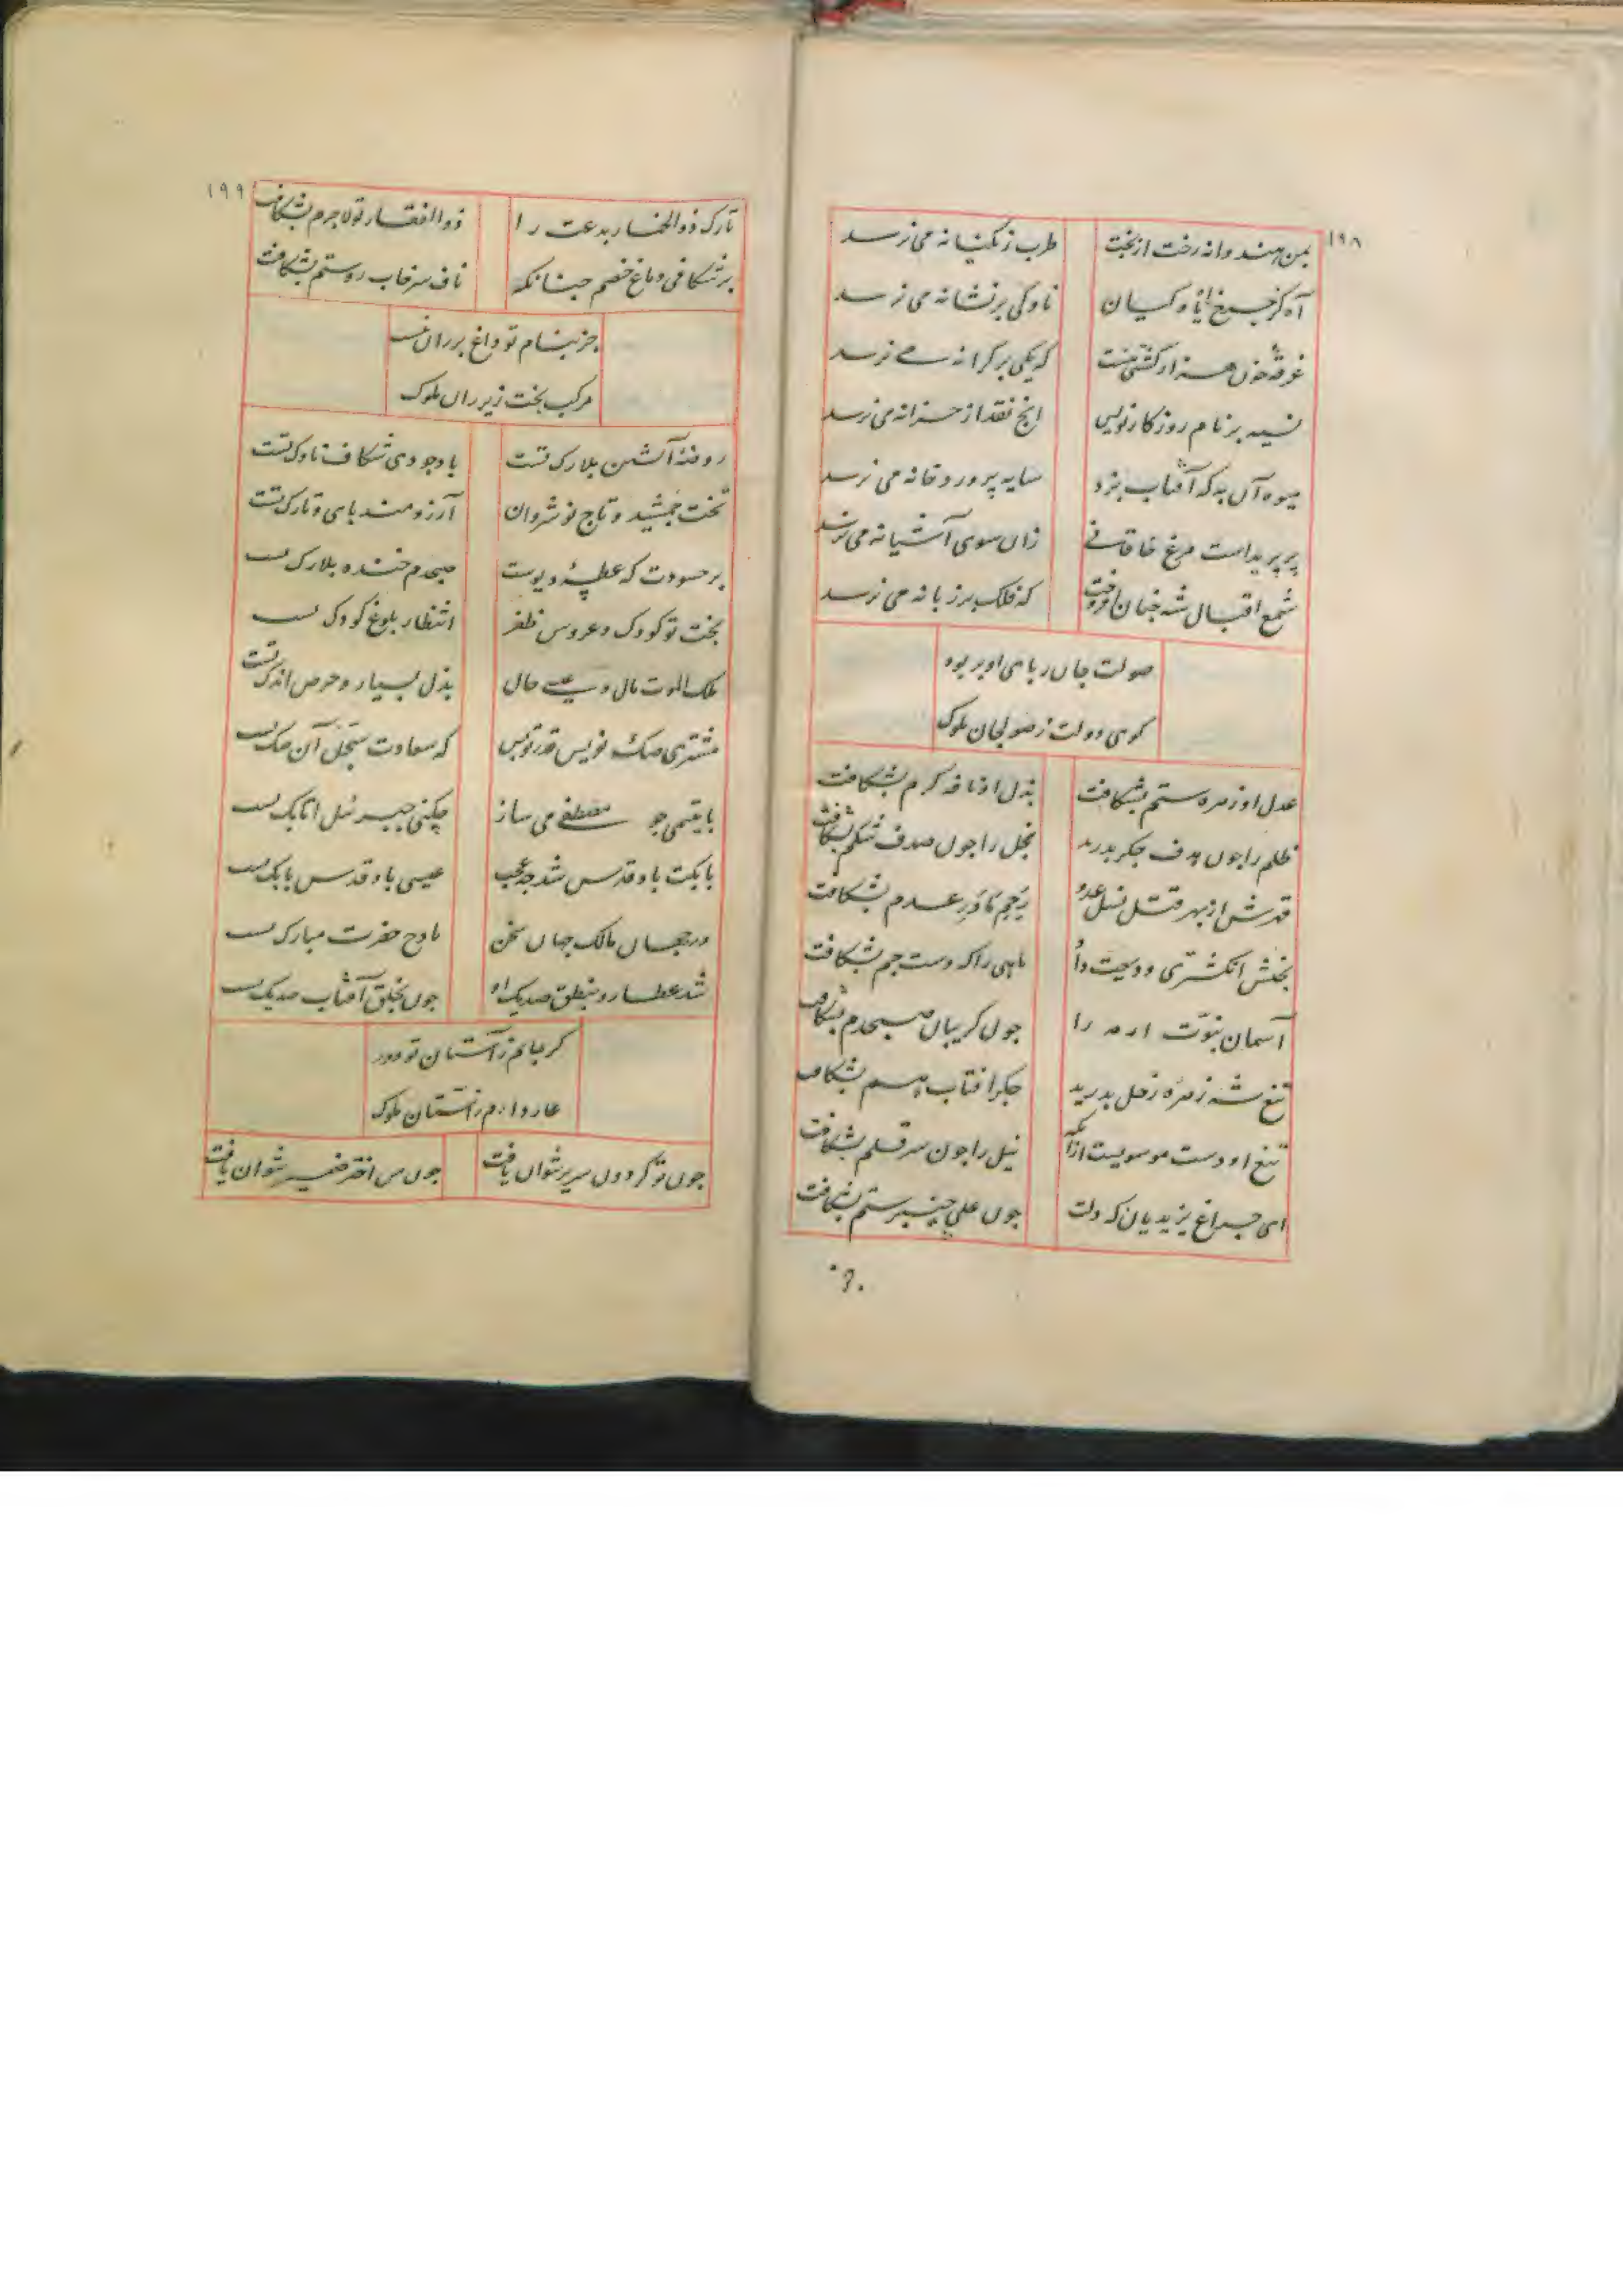 ۱۹۸
بمن هندوانه رخت از بخت طرب زنگیانه می نرسد
آه کز چرخ ناوکیان ناوکی بر نشانه می نرسد
غرقهٔ خون هزار کشتی هست که یکی بر کرانه می نرسد
نسیه بر نام روزکار نویس انج نقد از خزانه می نرسد
میوه آن به که آفتاب پزد سایه پرورد خانه می نرسد
پر بریدست مرغ خاقانی زان سوی آشیانه می نرسد
شمع اقبال شه چنان افروخت که فلک بر زبانه می نرسد
صولت جان ربای او بربود
کوی دولت ز صولجان ملوک
عدل او زهره ستم بشکافت بذل او نافه کرم بشکافت
ظلم را چون هدف جکر بدرید بخل را چون صدف شکم بشکافت
قدرش از بهر قتل نسل عدو رحم مادر عدم بشکافت
بخشش انکشتری ودیعت داد ماهی را که دست جم بشکافت
آسمان نبوّت ار مه را چون کریبان صبحدم بشکافت
تیغ شه زهره زحل بدرید جکر آفتاب هم بشکافت
تیغ او دست موسویست ازآنکه نیل را چون سر قلم بشکافت
ای چراغ یزیدیان که دلت چون علی خیبر ستم بشکافت
۱۹۹
تارک ذوالخمار بدعت را ذوالفقار تو لاجرم بشکافت
برشکافی دماغ خصم چنانکه ناف سرخاب روستم بشکافت
جز بنام تو داغ بر ران نیست
مرکب بخت زیر ران ملوک
روضهٔ آتشین بلارک تست باد جودی شکاف ناوک تست
تخت جمشید و تاج نوشروان آرزومند پای و تارک تست
بر حسودت که عطسهٔ دیوست صبحدم خنده بلارک تست
بخت تو کودک و عروس ظفر انتظار بلوغ کودک تست
ملک الموت مال و عیسی حال بذل بسیار و حرص اندک تست
مشتری صک نویس قدر توبس که سعادت سجل آن صک تست
با یتیمی چو مصطفی می ساز چکنی جبرئیل اتابک تست
بابکت باد قدس شد چه عجب عیسی باد قدس بابک تست
در جهان مالک جهان سخن مادح حضرت مبارک تست
شد عطارد بنطق صد یک او چون بخلق آفتاب صد یک تست
کر جانم ز آستان تو دور
عار دارم ز آستان ملوک
چون تو کردون سریر نتوان یافت چون من اختر ضمیر نتوان یافت